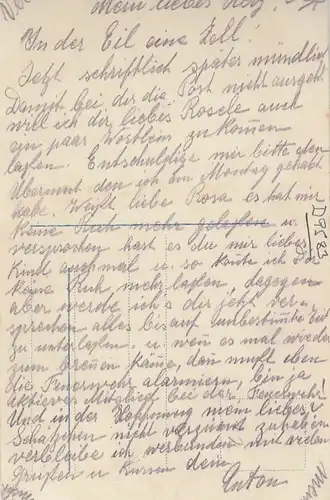 Mein liebes Herz!
In der Eil eine Zell!
Jetzt schriftlich später mündlich
Damit bei dir die Post nicht ausgeht
will ich dir liebes Rosele auch
ein paar Wörtlein zukommen
laßen. Entschuldige mir bitte den
Übermut den ich am Montag gehabt
habe. Weißt liebe Rosa es hat mir
keine Ruh mehr gelaßen u.
versprochen hast es du mir liebes
Kind auch mal u. so konte ich dir
keine Ruh mehr laßen, dagegen
aber werde ich's dir jetzt ver-
sprechen alles bis auf unbestimmte Zeit
zu unterlaßen. u wen es mal wieder
zum brennen käme, dan mußt eben
die Feuerwehr alarmiern, bin ja
aktieves Mitglied bei der Feuerwehr
Und in der Hoffnung mein liebes
Schatzerl nicht verzürnt zu haben
verbleibe ich verbunden mit vielen
Grüßen u Küssen dein
Anton
D9583